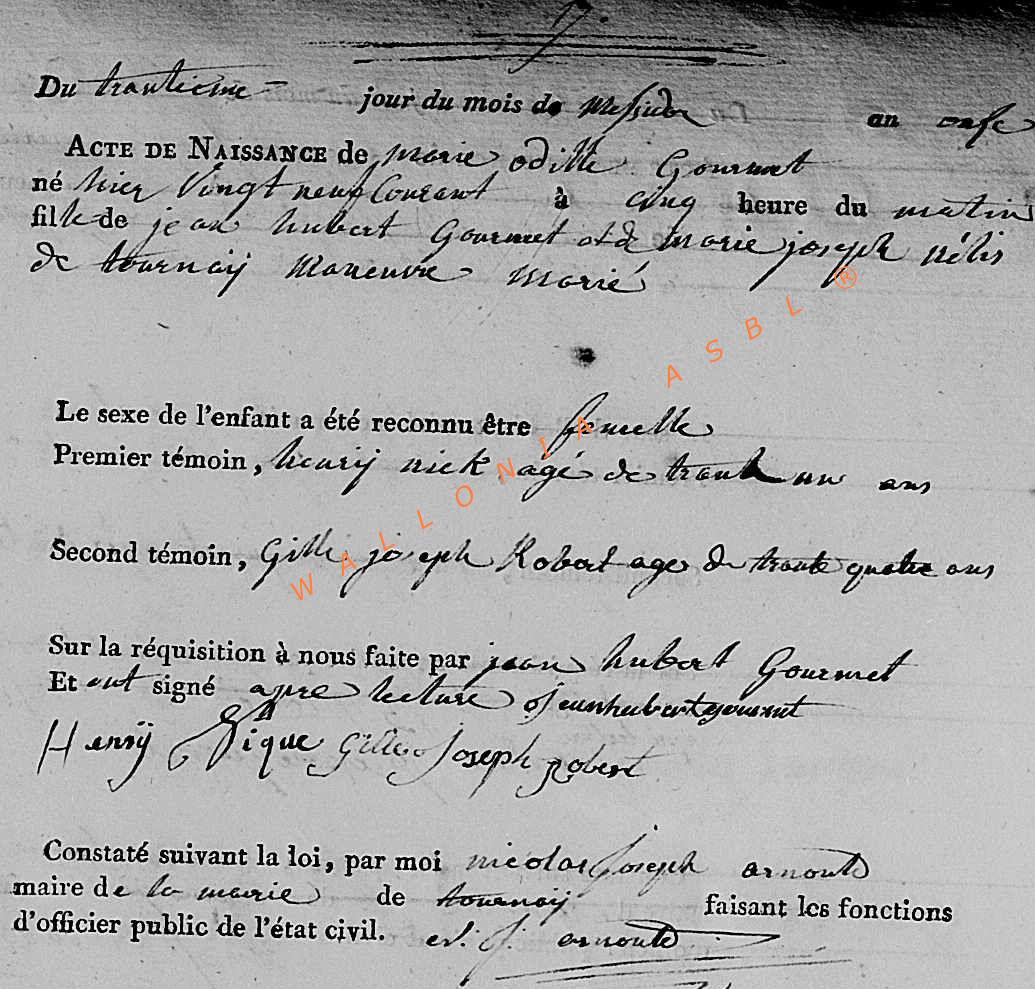 Du trantieme jour du mois de Messidor an onse
ACTE DE NAISSANCE de marie odille Gourmet
né hier Vingt neuf Courant à cinq heure du matin
fille de jean hubert Gourmet et de marie joseph nélis
de tournaÿ Maneuvre marié
Le sexe de l'enfant a été reconnu être femelle
Premier témoin, henrij nick agé de trante un ans
Second témoin, Gille joseph Robert age de trante quatre ans
Sur la réquisition à nous faite par jean hubert Gourmet
Et ont signé apre lecture jeanhubertgourmet
Henrÿ Pique Gille Joseph robert
Constaté suivant la loi, par moi nicolas joseph arnould
maire de la mairie de tournaÿ faisant les fonctions
d'officier public de l'état civil. arnould
WALLONIA ASBL ®